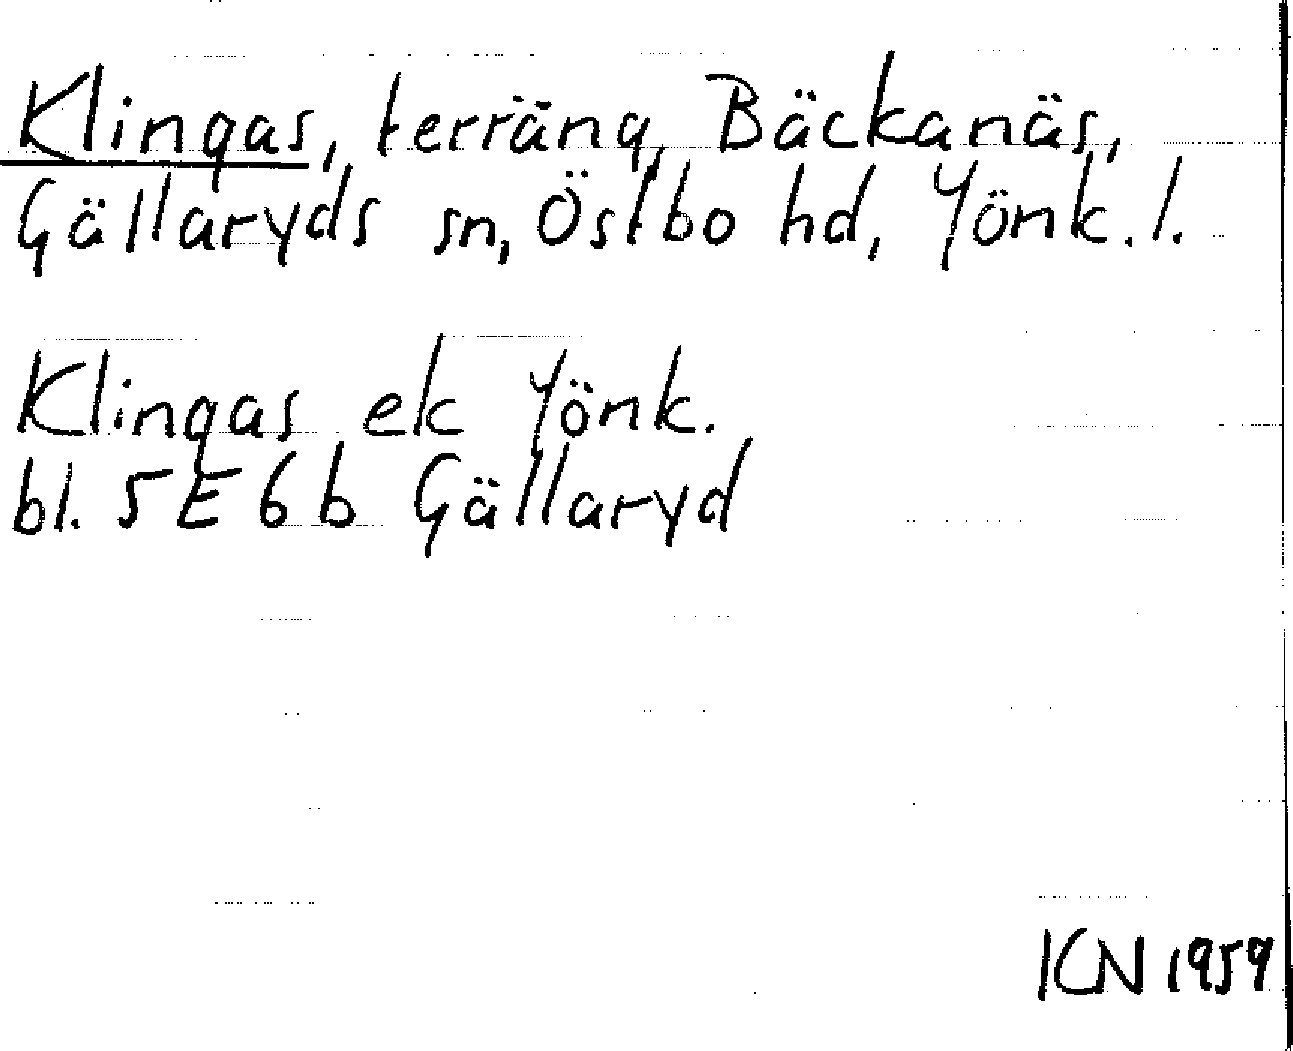 Klingas, terräng, Bäckanäs,
Gällaryds sn, Östbo hd, Jönk. l.
Klingas ek Jönk.
bl. 5E6b Gällaryd
KN 1959